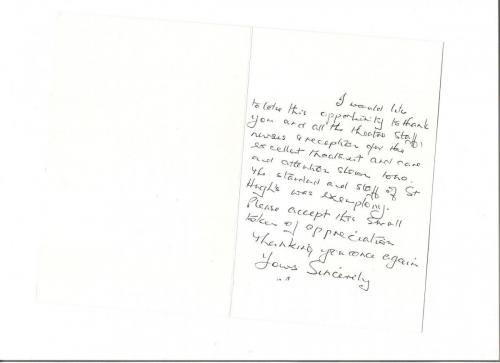 I would like
to take this opportunity to thank
you and all the theatre staff,
nurses & reception for the
excellent treatment and care
and attention shown to me.
The standard and staff of St
Hugh's was exemplary.
Please accept this small
token of appreciation
Thanking you once again
Yours Sincerely